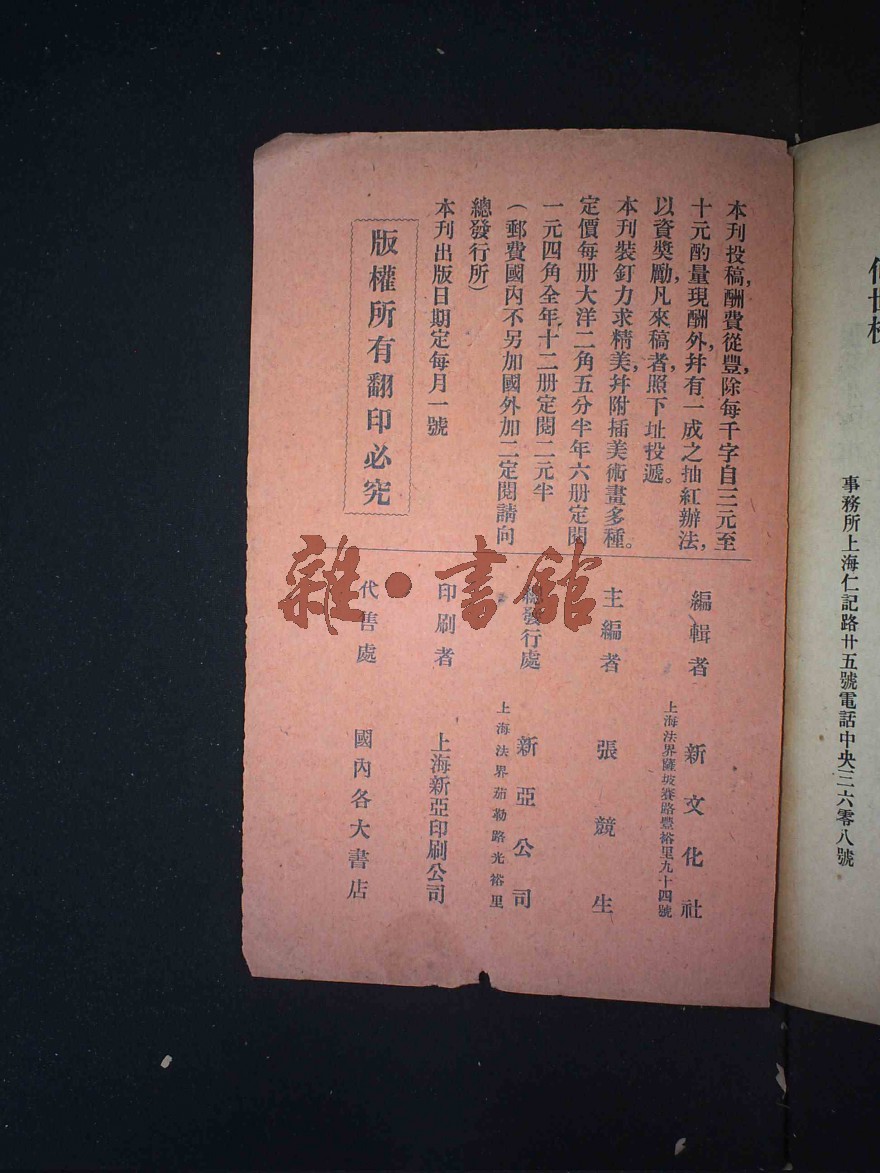 本刊投稿，酬費從豐，除每千字自三元至
十元酌量現酬外，幷有一成之抽紅辦法，
以資奬勵，凡來稿者，照下址投遞。
本刊裝釘力求精美，幷附插美術畫多種。
定價每册大洋二角五分半年六册定閱
一元四角全年十二册定閱二元半
（郵費國內不另加國外加二定閱請向
總發行所）
本刊出版日期定每月一號
版權所有翻印必究
編輯者 新文化社
上海法界薩坡賽路豐裕里九十四號
主編者 張競生
總發行處 新亞公司
上海法界茄勒路光裕里
印刷者 上海新亞印刷公司
代售處 國內各大書店
雜·書館
事務所上海仁記路廿五號電話中央三六零八號